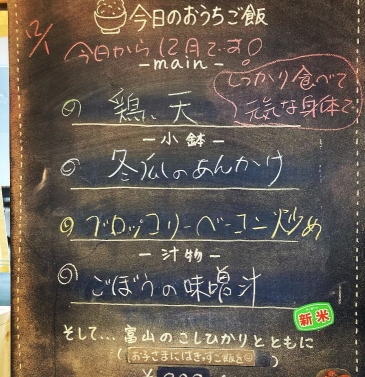 今日のおうちご飯
今日から12月です!
-main-
しっかり食べて
元気な身体で
鶏天
-小鉢-
冬瓜のあんかけ
ブロッコリーベーコン炒め
-汁物-
ごぼうの味噌汁
新米
そして...富山のこしひかりとともに
(お子さまにはきっずご飯を)